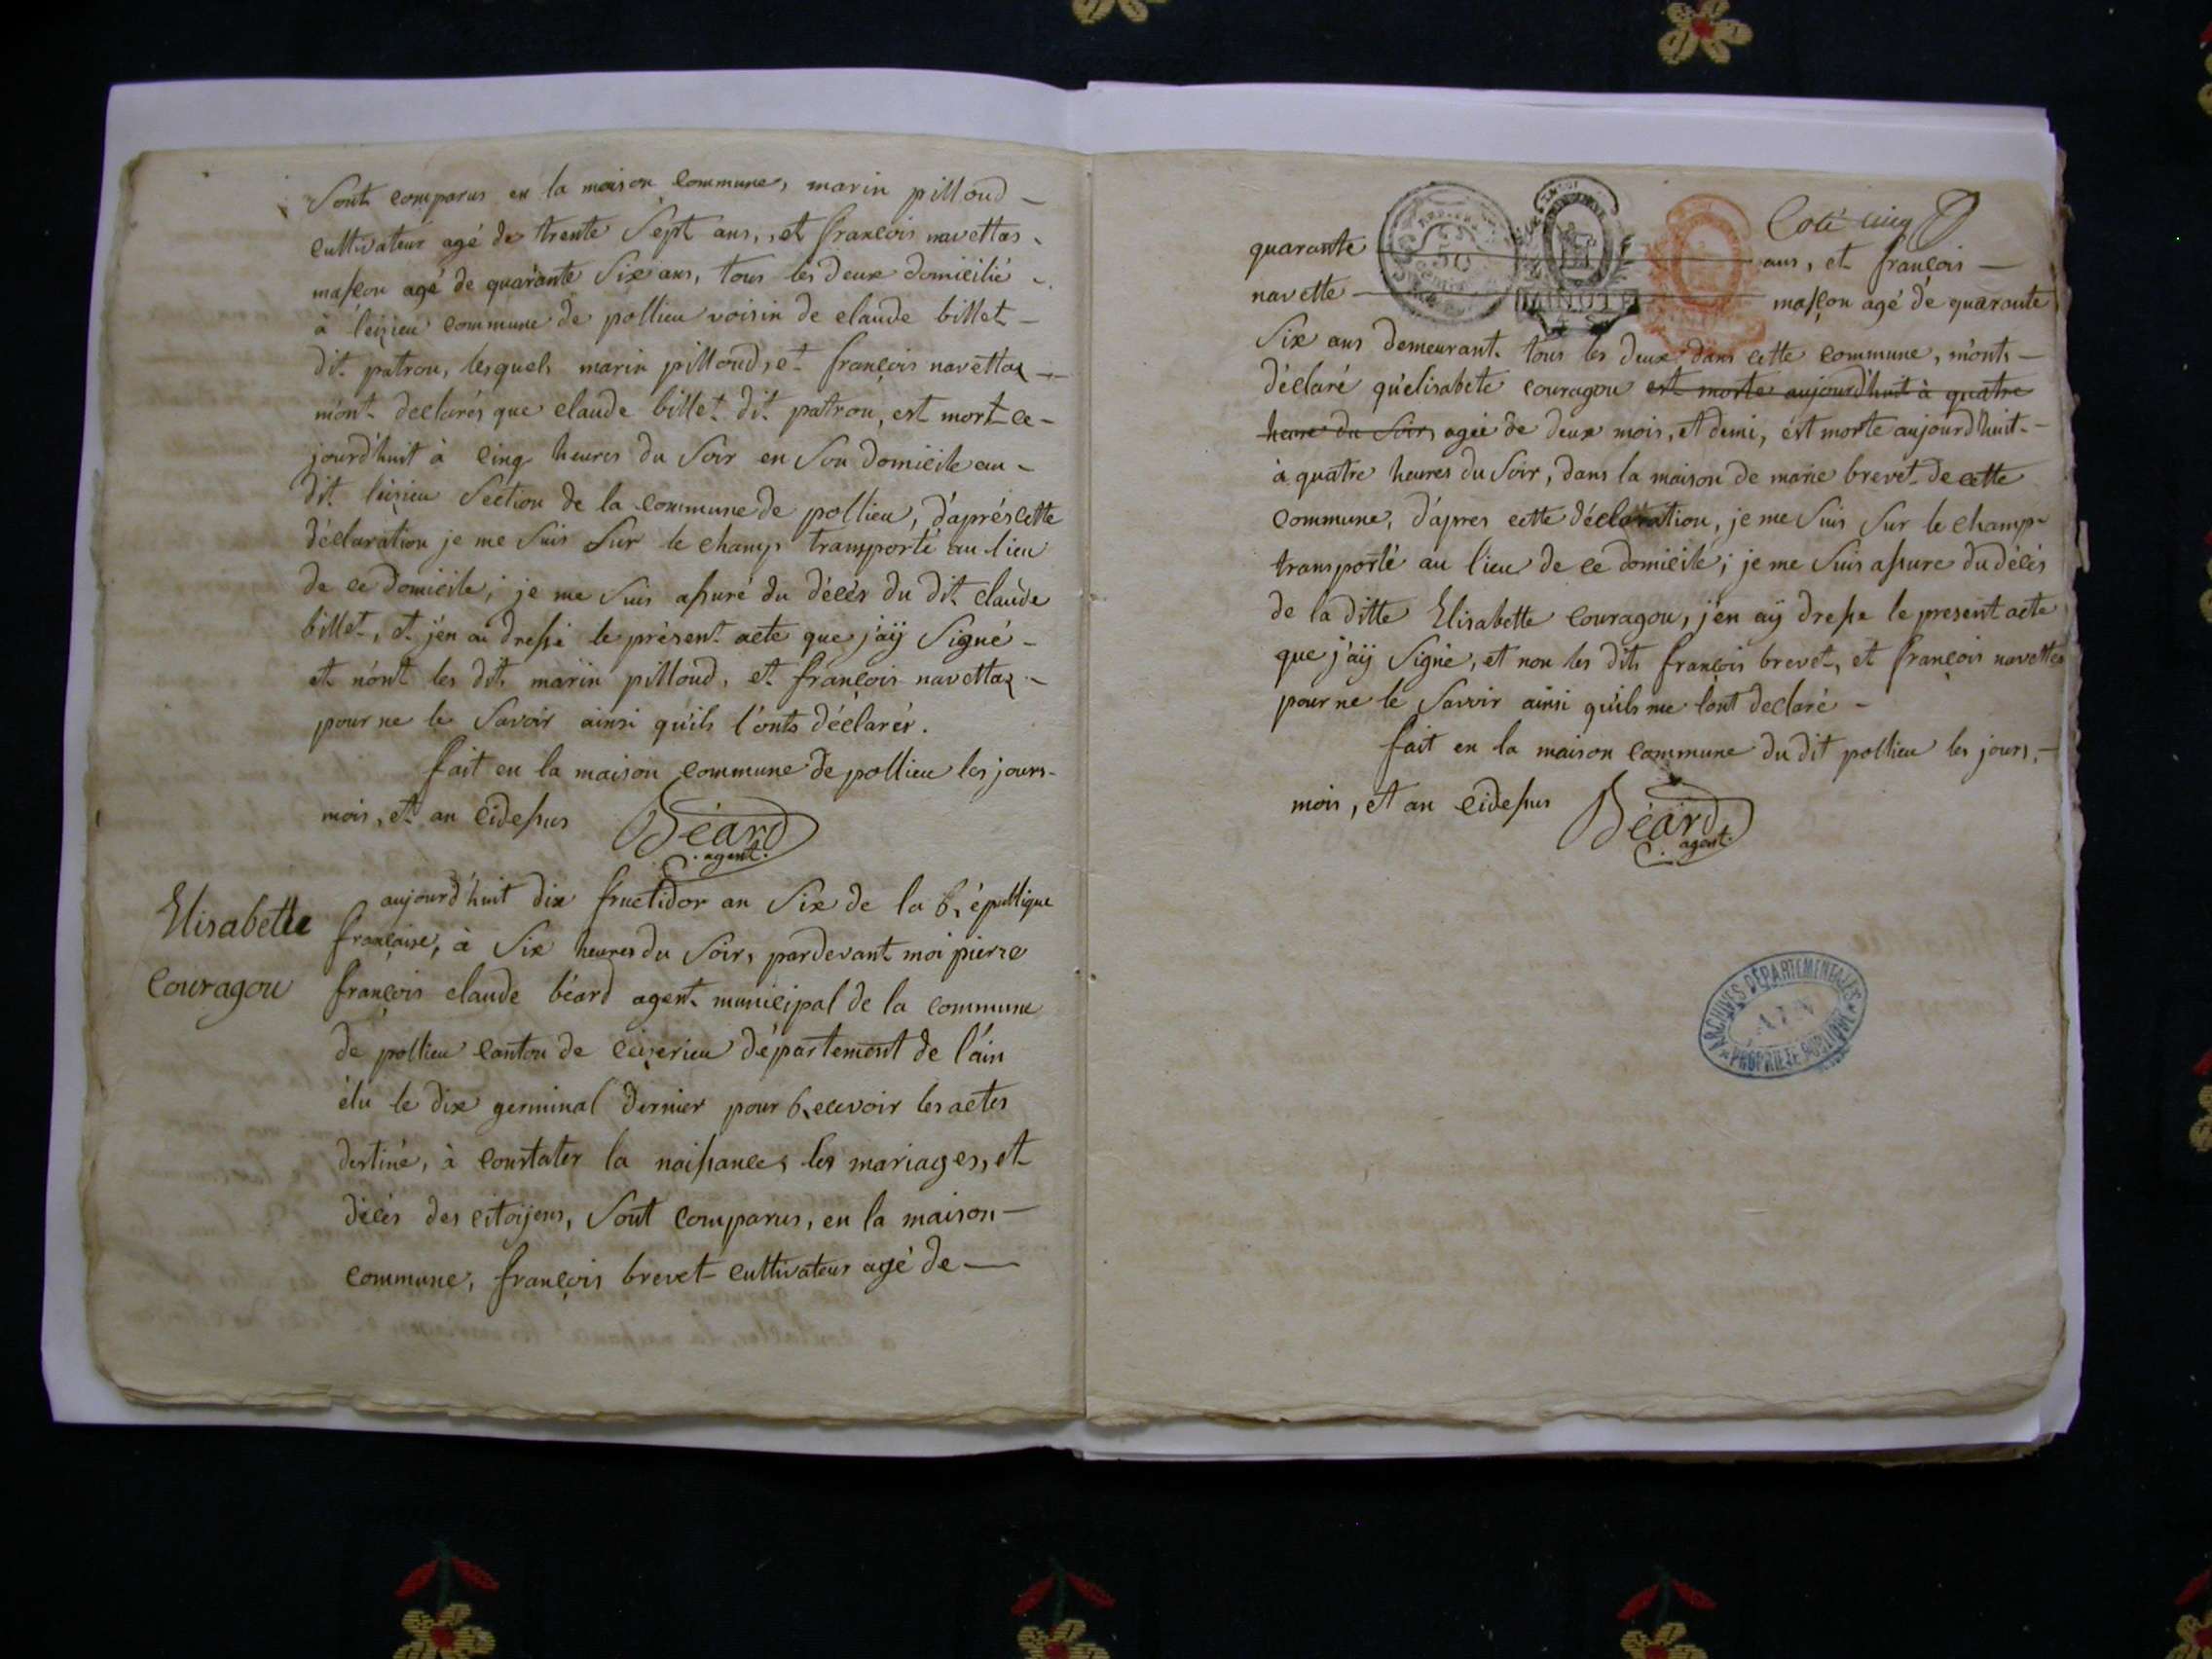 Sont comparus en la maison commune, marin pilloud
cultivateur agé de trente sept ans, et françois navettas
masson agé de quarante six ans, tous les deux domicilié
à leizieu commune de pollieu voisin de claude billet
dit patron, lesquels marin pilloud, et françois navettaz
m'ont declarés que claude billet dit patron, est mort ce-
jourd'huit à cinq heures du soir en son domicile au
dit leizieu section de la commune de pollieu, d'après cette
déclaration je me suis sur le champ transporté au lieu
de ce domicile, je me suis assuré du décès du dit claude
billet, et j'en ai dressé le présent acte que j'aÿ signé
et n'ont les dits marin pilloud, et françois navettaz
pour ne le savoir ainsi qu'ils l'onts déclarés.
fait en la maison commune de pollieu les jours
mois, et an cidessus Béard
agent.
Elisabette
Couragou
aujourd'huit dix fructidor an six de la république
française, à six heures du soir, pardevant moi pierre
françois claude béard agent municipal de la commune
de pollieu canton de ceizerieu département de l'ain
élu le dix germinal dernier pour recevoir les actes
destiné, à constater la naissances les mariages, et
décès des citoÿens, sont comparus, en la maison
commune, françois brevet cultivateur agé de
Coté cinq
quarante ans, et françois
navette masson agé de quarante
six ans demeurant tous les deux dans cette commune, m'onts
déclaré qu'elisabete couragou est morte aujourd'huit à quatre
heure du soir, agée de deux mois, et demi, est morte aujourd'huit
à quatre heures du soir, dans la maison de marie brevet de cette
commune, d'apres cette déclaration, je me suis sur le champ
transporté au lieu de ce domicile, je me suis assure du décès
de la ditte Elisabette couragou, j'en aÿ dresse le present acte
que j'aÿ signé, et non les dits françois brevet, et françois navettes
pour ne le savoir ainsi qu'ils me lont declaré
fait en la maison commune du dit pollieu les jours,
mois, et an cidessus Béard
agent.
ARCHIVES DÉPARTEMENTALES
AIN
PROPRIÉTÉ PUBLIQUE